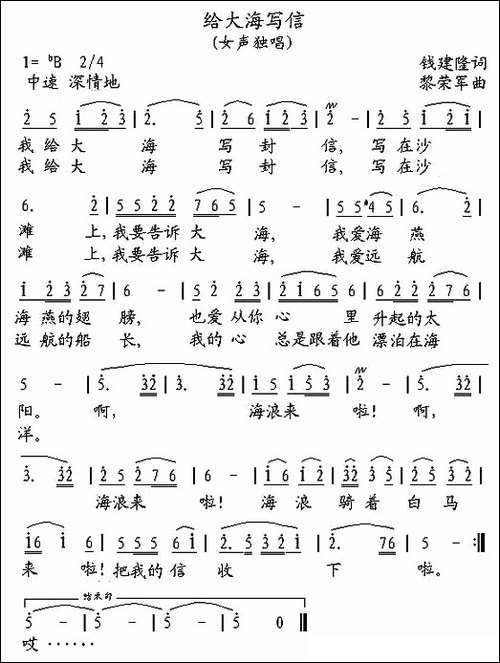 给大海写信
(女声独唱)
1= ᵇB 2/4 钱建隆词
中速 深情地 黎荣军曲
2 5 i 2 3 | 2. 5 | 2 6 i 2 3 | 2 - | 2 5 i 2 i |
我给大 海 写 封 信, 写 在沙
我给大 海 写 封 信, 写 在沙
6. 2 | 5 5 2 2 7 6 5 | 5 - | 5 5 4 5 | 6. 2 |
滩 上,我要告诉大 海, 我爱海 燕
滩 上,我要告诉大 海, 我爱远 航
i 2 3 2 7 | 6 - | 5 2 2 3 | 2 i 6 5 6 | 6 2 2 7 6 |
海 燕的翅 膀, 也爱从你 心 里 升起的太
远 航的船 长, 我的心 总是跟着他 漂泊在海
5 - | 5. 3 2 | 3. 3 2 | i 5 i 5 3 | 2 - | 5. 3 2 |
阳。 啊, 海浪来 啦! 啊,
洋。
3. 3 2 | 2 5 2 7 6 | 6 - | i 6 i 2 | 3 2 3 5 | 2 5 3 2 |
海浪来 啦! 海 浪 骑 着 白 马
i 6 i 6 | 5 5 5 6 i | 2. 5 3 2 i | 2. 7 6 | 5 - :||
来 啦!把我的信 收 下 啦。
结束句
5 - | 5 - | 5 - | 5 0 ||
哎 ⋯⋯